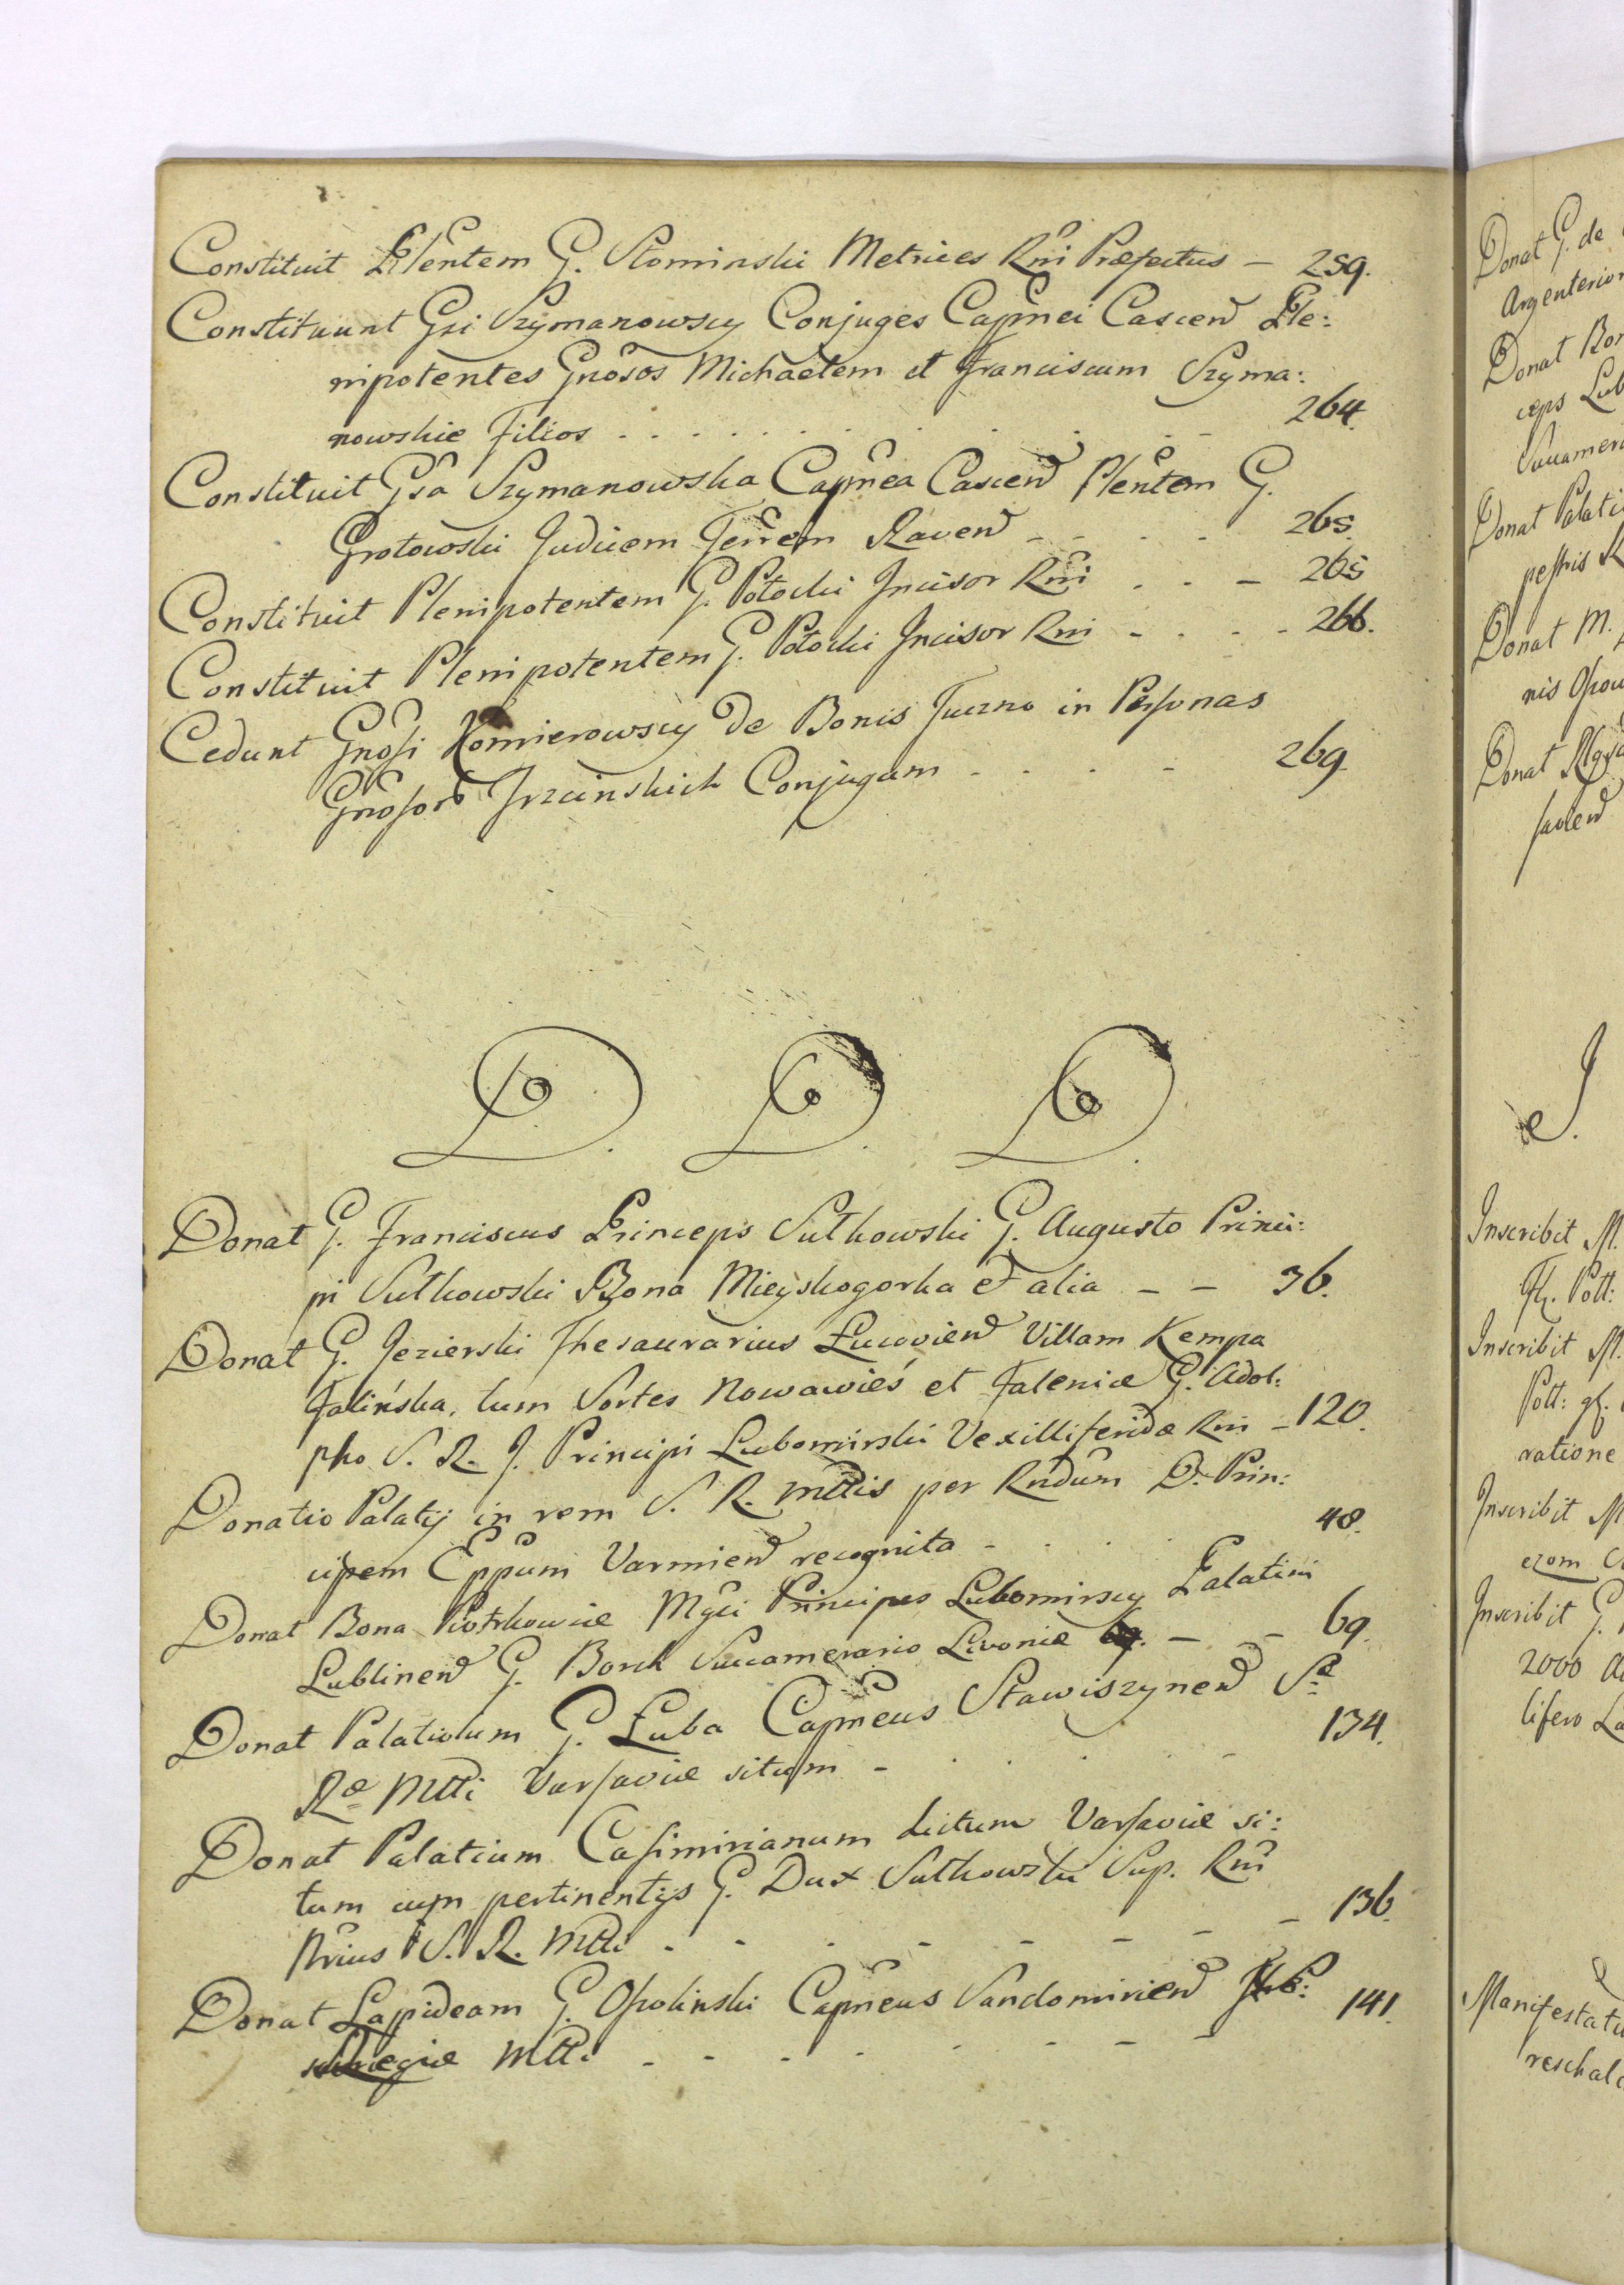 Constituit Plentem G. Słominski Metrices Rni Præfectus — 259.
Constituunt Gsi Szymanowscy Conjuges Capnei Cascen Ple:
nipotentes Gnosos Michaelem et Franciscum Szyma:
nowskie Filios . . . . . . . . . 264.
Constituit Gsa Szymanowska Capnea Cascen Plentem G.
Grotowski Judicem Terrem Raven - - - - 265.
Constituit Plenipotentem G. Potocki Incisor Rni . . - 265
Constituit Plenipotentem G. Potocki Incisor Rni - . . - 266.
Cedunt Gnosi Komierowscy de Bonis Juczno in Personas
Gnosor Trzcinskich Conjugum . . . - 269.
D. D. D.
Donat G. Franciscus Princeps Sułkowski G. Augusto Princi:
pi Sułkowski Bona Mieyskogorka et alia - - 36.
Donat G. Jezierski Thesaurarius Łucovien Villam Kempa
Falińska, tum Sortes Nowawieś et Falenice G. Adol:
pho S. R. J. Principi Lubomirski Vexilliferidæ Rni - 120.
Donatio Palatij in rem S. R. Mttis per Rndum D. Prin:
cipem Eppum Varmien recognita - . . . 48.
Donat Bona Piotrkowice Mgci Principes Lubomirscy Palatini
Lublinen G. Borch Succamerario Livoniæ - - 69.
Donat Palatiolum G. Łuba Capneus Stawiszynen Sæ
Ræ Mtti Varsaviæ situm - . . . - 134.
Donat Palatium Casimirianum dictum Varsaviæ si:
tum cum pertinentijs G. Dux Sułkowski Sup. Rni
Nrius S. R. Mtti . - . - - - - - 136.
Donat Lapideam G. Opolinski Capneus Sandomirien 141.
Regiæ Mtti - - - . - - -
Donat G. de
Argenterior
Donat Bon
ceps Lub
Succamer
Donat Palati
pestris
Donat M.
nis
Donat
savien
J.
Inscribit M.
Fl. Pott:
Inscribit M.
Pott: gl.
ratione
Inscribit M
Inscribit G.
2000
lifero La
Manifestatu
reschalc